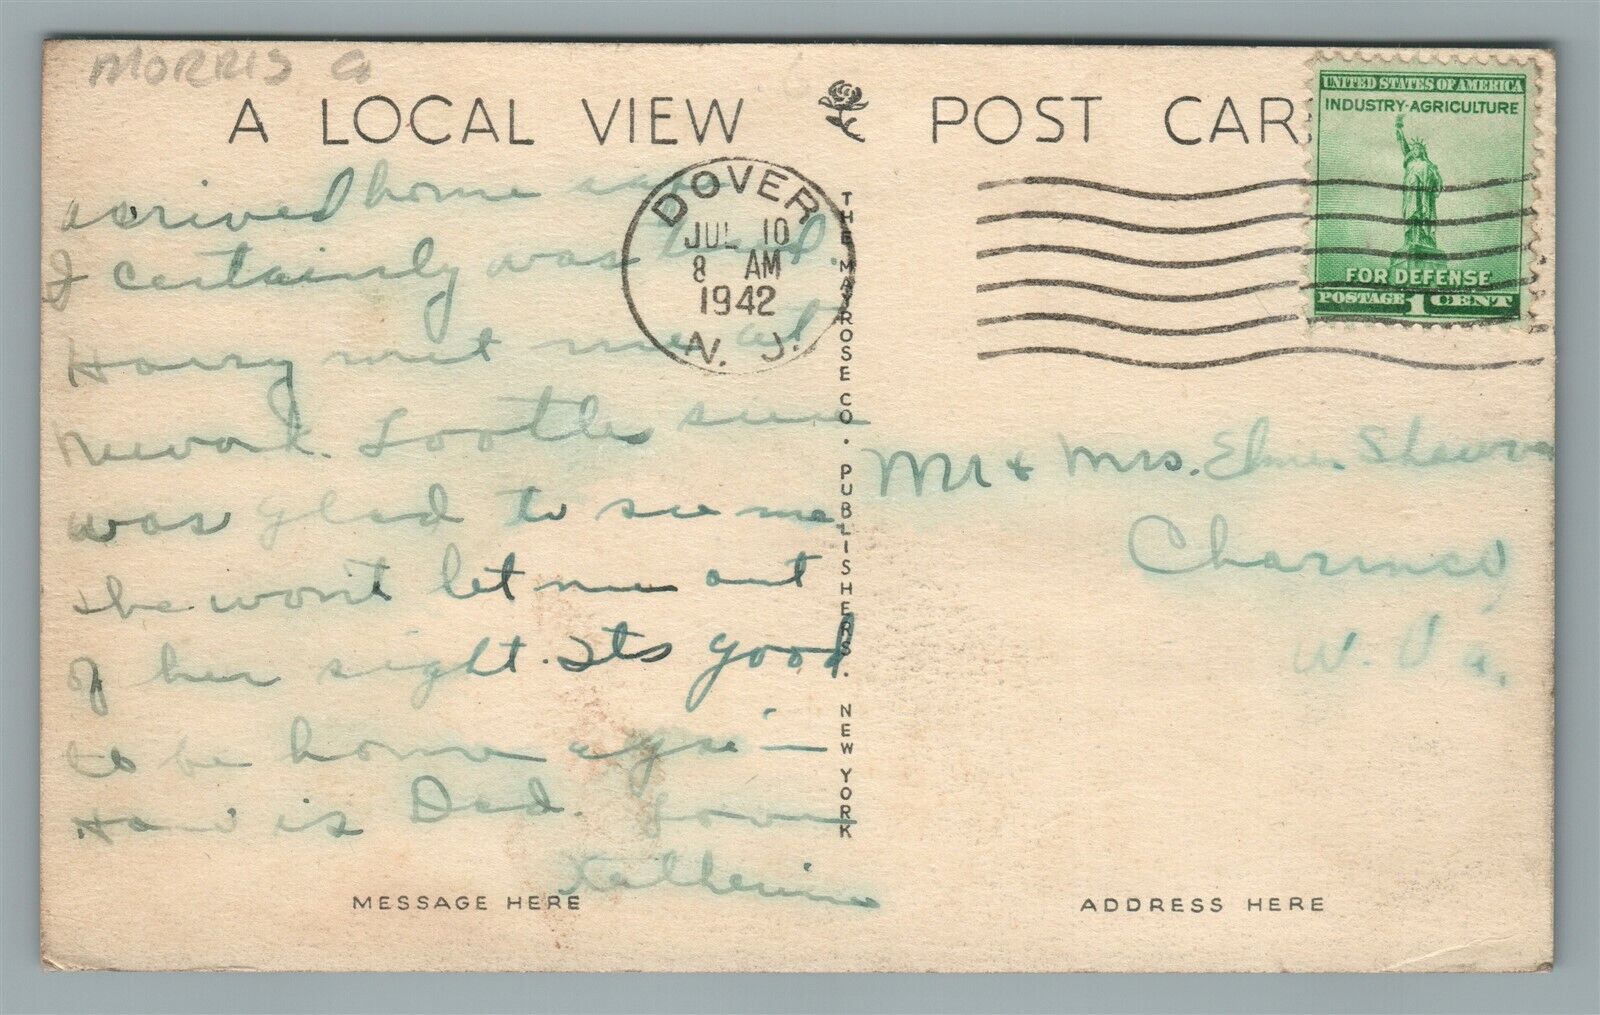 MORRIS
A LOCAL VIEW POST CAR
UNITED STATES OF AMERICA
INDUSTRY·AGRICULTURE
FOR DEFENSE
POSTAGE 1 CENT
DOVER
JUL 10
8 AM
1942
N. J.
arrived home
I certainly was
Harry met me at
Newark. Lootle sure
was glad to see me.
she won't let me out
of her sight. Its good
to be home again
How is Dad. Love
Katherine
MESSAGE HERE
THE MAYROSE CO. PUBLISHERS. NEW YORK
Mr & Mrs. Elmer
Charmco
W. Va.
ADDRESS HERE